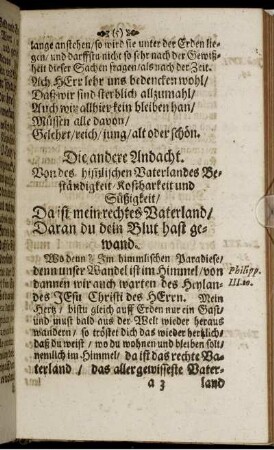 (5)
lange anstehen/ so wird sie unter der Erden lie-
gen/ und darffstu nicht so sehr nach der Gewiß-
heit dieser Sachen fragen/als nach der Zeit.
Ach HErr lehr uns bedencken wohl/
Daß wir sind sterblich allzumahl/
Auch wir allhier kein bleiben han/
Müssen alle davon/
Gelehrt/ reich/ jung/ alt oder schön.
Die andere Andacht.
Von des himlischen Vaterlandes Be-
ständigkeit/ Kostbarkeit und
Süßigkeit/
Da ist mein rechtes Vaterland/
Daran du dein Blut hast ge-
wand.
Wo denn? Im himmlischen Paradiese/
denn unser Wandel ist im Himmel/ von
dannen wir auch warten des Heylan-
des JEsu Christi des HErrn. Mein
Hertz/ bistu gleich auff Erden nur ein Gast/
und must bald aus der Welt wieder heraus
wandern/ so tröstet dich das wieder hertzlich/
daß du weist/ wo du wohnen und bleiben solt/
nemlich im Himmel/ da ist das rechte Va-
terland/ das allergewisseste Vater-
a 3 land
Philipp.
III. 20.